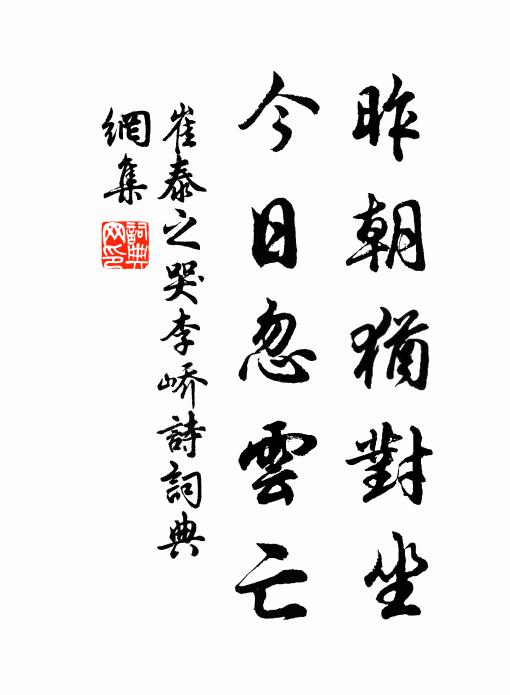 昨朝猶對坐
今日忽雲亡
崔泰之哭李嶠詩詞典
網集
詞典
网印